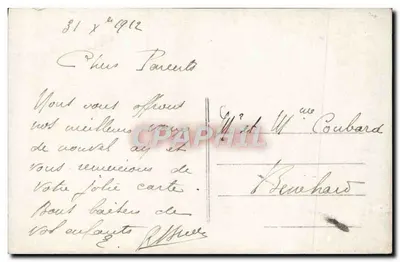 31 Xbre 1912
Chers Parents
Nous vous offrons
nos meilleurs voeux
de nouvel an et
vous remercions de
votre jolie carte.
Bons baisers de
vos enfants
Mr et Mme Coubard
Béněhard
CPAPHIL